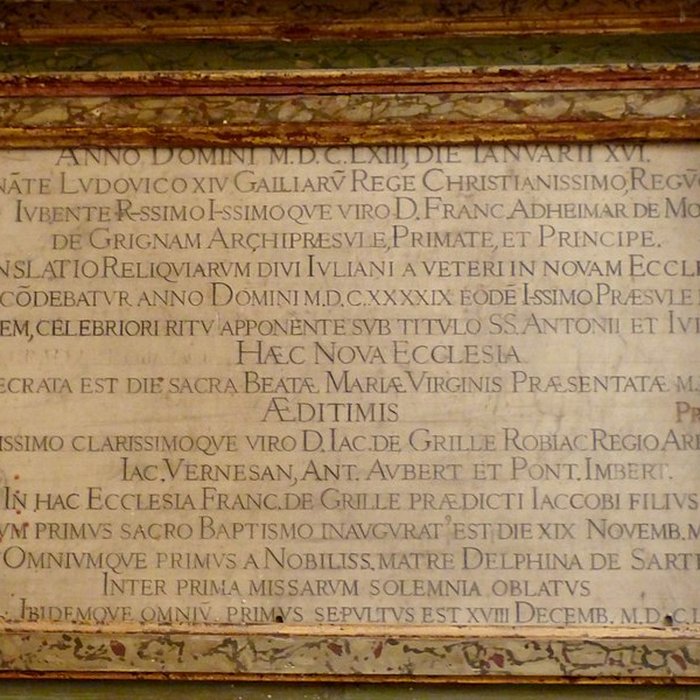 ANNO DOMINI M.D.C.LXIII, DIE IANVARII XVI.
NÃTE LVDOVICO XIV GALLIARṼ REGE CHRISTIANISSIMO, REGV
IVBENTE R-SSIMO I-SSIMOQVE VIRO D. FRANC. ADHEIMAR DE MO
DE GRIGNAM ARCHIPRÆSVLE, PRIMATE, ET PRINCIPE.
NSLATIO RELIQVIARVM DIVI IVLIANI A VETERI IN NOVAM ECCLE
CÕDEBATVR ANNO DOMINI M.D.C.XXXXIX EODẼ I-SSIMO PRÆSVLE
EM, CELEBRIORI RITV APPONẼTE SVB TITVLO SS. ANTONII ET IVI
HÆC NOVA ECCLESIA
ECRATA EST DIE SACRA BEATÆ MARIÆ VIRGINIS PRÆSENTATÆ M.
ÆDITIMIS PR
ISSIMO CLARISSIMOQVE VIRO D. IAC. DE GRILLE ROBIAC REGIO AR
IAC. VERNESAN, ANT. AVBERT ET PONT. IMBERT.
IN HAC ECCLESIA FRANC. DE GRILLE PRÆDICTI IACCOBI FILIVS
VM PRIMVS SACRO BAPTISMO INAVGVRAT' EST DIE XIX NOVEMB. M
OMNIVMQVE PRIMVS A NOBILISS. MATRE DELPHINA DE SARTI
INTER PRIMA MISSARVM SOLEMNIA OBLATVS
IBIDEMQVE OMNIṼ PRIMVS SEPVLTVS EST XVIII DECEMB. M.D.C.L